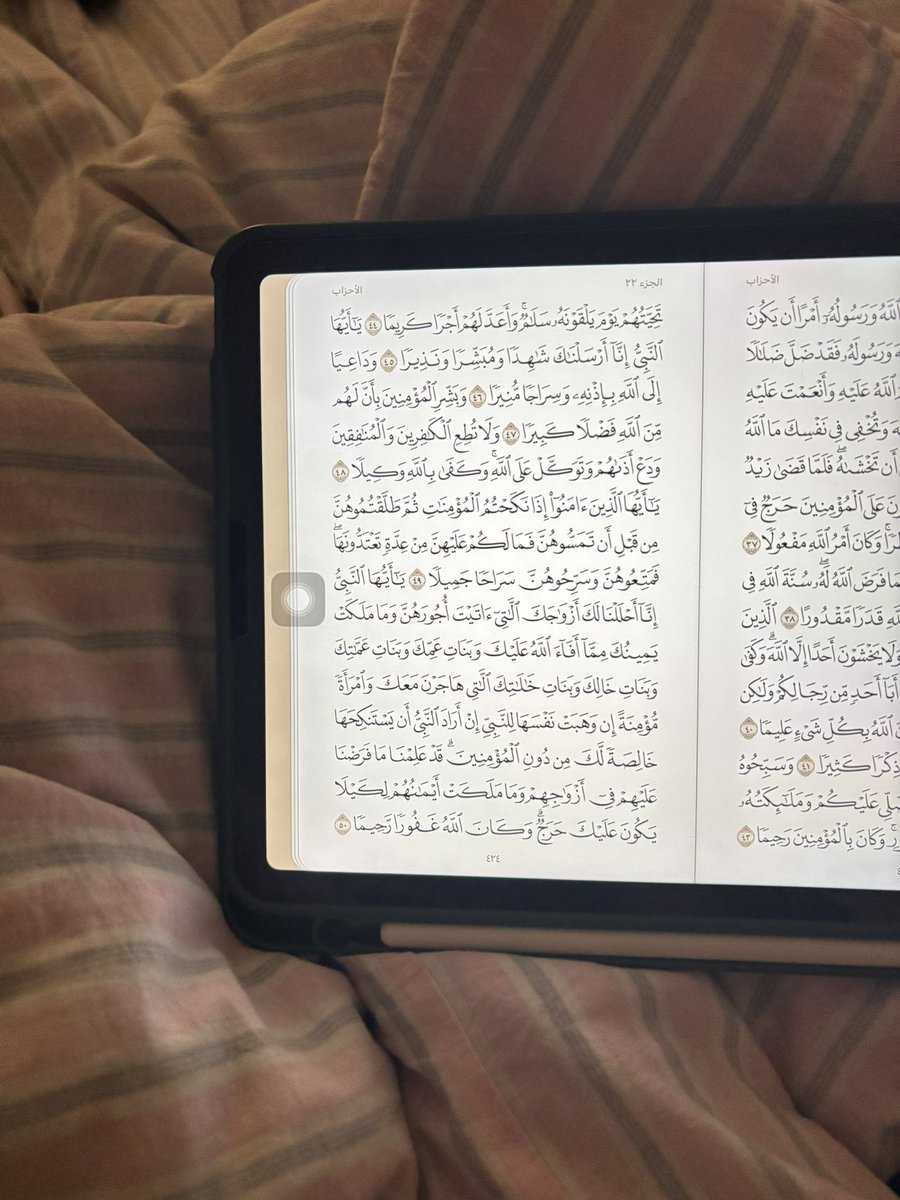 الأحزاب
ٱللَّهُ وَرَسُولُهُۥٓ أَمْرًا أَن يَكُونَ
وَرَسُولَهُۥ فَقَدْ ضَلَّ ضَلَٰلًا
ٱللَّهُ عَلَيْهِ وَأَنْعَمْتَ عَلَيْهِ
وَتُخْفِى فِى نَفْسِكَ مَا ٱللَّهُ
أَن تَخْشَىٰهُ ۖ فَلَمَّا قَضَىٰ زَيْدٌ
عَلَى ٱلْمُؤْمِنِينَ حَرَجٌ فِىٓ
وَكَانَ أَمْرُ ٱللَّهِ مَفْعُولًا ٣٧
فَرَضَ ٱللَّهُ لَهُۥ ۖ سُنَّةَ ٱللَّهِ فِى
قَدَرًا مَّقْدُورًا ٣٨ ٱلَّذِينَ
وَلَا يَخْشَوْنَ أَحَدًا إِلَّا ٱللَّهَ ۗ وَكَفَىٰ
أَبَآ أَحَدٍ مِّن رِّجَالِكُمْ وَلَٰكِن
ٱللَّهُ بِكُلِّ شَىْءٍ عَلِيمًا ٤٠
ذِكْرًا كَثِيرًا ٤١ وَسَبِّحُوهُ
عَلَيْكُمْ وَمَلَٰٓئِكَتُهُۥ
وَكَانَ بِٱلْمُؤْمِنِينَ رَحِيمًا ٤٣
الجزء ٢٢ الأحزاب
تَحِيَّتُهُمْ يَوْمَ يَلْقَوْنَهُۥ سَلَٰمٌ ۚ وَأَعَدَّ لَهُمْ أَجْرًا كَرِيمًا ٤٤ يَٰٓأَيُّهَا
ٱلنَّبِىُّ إِنَّآ أَرْسَلْنَٰكَ شَٰهِدًا وَمُبَشِّرًا وَنَذِيرًا ٤٥ وَدَاعِيًا
إِلَى ٱللَّهِ بِإِذْنِهِۦ وَسِرَاجًا مُّنِيرًا ٤٦ وَبَشِّرِ ٱلْمُؤْمِنِينَ بِأَنَّ لَهُم
مِّنَ ٱللَّهِ فَضْلًا كَبِيرًا ٤٧ وَلَا تُطِعِ ٱلْكَٰفِرِينَ وَٱلْمُنَٰفِقِينَ
وَدَعْ أَذَىٰهُمْ وَتَوَكَّلْ عَلَى ٱللَّهِ ۚ وَكَفَىٰ بِٱللَّهِ وَكِيلًا ٤٨
يَٰٓأَيُّهَا ٱلَّذِينَ ءَامَنُوٓا۟ إِذَا نَكَحْتُمُ ٱلْمُؤْمِنَٰتِ ثُمَّ طَلَّقْتُمُوهُنَّ
مِن قَبْلِ أَن تَمَسُّوهُنَّ فَمَا لَكُمْ عَلَيْهِنَّ مِنْ عِدَّةٍ تَعْتَدُّونَهَا ۖ
فَمَتِّعُوهُنَّ وَسَرِّحُوهُنَّ سَرَاحًا جَمِيلًا ٤٩ يَٰٓأَيُّهَا ٱلنَّبِىُّ
إِنَّآ أَحْلَلْنَا لَكَ أَزْوَٰجَكَ ٱلَّٰتِىٓ ءَاتَيْتَ أُجُورَهُنَّ وَمَا مَلَكَتْ
يَمِينُكَ مِمَّآ أَفَآءَ ٱللَّهُ عَلَيْكَ وَبَنَاتِ عَمِّكَ وَبَنَاتِ عَمَّٰتِكَ
وَبَنَاتِ خَالِكَ وَبَنَاتِ خَٰلَٰتِكَ ٱلَّٰتِى هَاجَرْنَ مَعَكَ وَٱمْرَأَةً
مُّؤْمِنَةً إِن وَهَبَتْ نَفْسَهَا لِلنَّبِىِّ إِنْ أَرَادَ ٱلنَّبِىُّ أَن يَسْتَنكِحَهَا
خَالِصَةً لَّكَ مِن دُونِ ٱلْمُؤْمِنِينَ ۗ قَدْ عَلِمْنَا مَا فَرَضْنَا
عَلَيْهِمْ فِىٓ أَزْوَٰجِهِمْ وَمَا مَلَكَتْ أَيْمَٰنُهُمْ لِكَيْلَا
يَكُونَ عَلَيْكَ حَرَجٌ ۗ وَكَانَ ٱللَّهُ غَفُورًا رَّحِيمًا ٥٠
٤٢٤